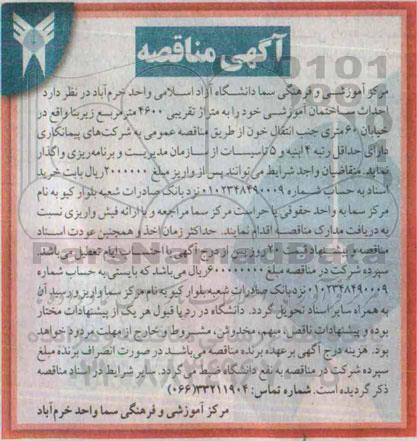 آگهی مناقصه
مرکز آموزشی و فرهنگی سما دانشگاه آزاد اسلامی واحد خرم‌آباد در نظر دارد
احداث ساختمان آموزشی خود را به متراژ تقریبی ۴۶۰۰ مترمربع زیربنا واقع در
خیابان ۶۰ متری جنب انتقال خون از طریق مناقصه عمومی به شرکت‌های پیمانکاری
دارای حداقل رتبه ۴ ابنیه و ۵ تاسیسات از سازمان مدیریت و برنامه‌ریزی واگذار
نماید. متقاضیان واجد شرایط می‌توانند پس از واریز مبلغ ۲۰۰۰۰۰۰ ریال بابت خرید
اسناد به حساب شماره ۰۱۰۲۳۴۸۴۹۰۰۰۹ نزد بانک صادرات شعبه بلوار کیو به نام
مرکز سما به واحد حقوقی یا حراست مرکز سما مراجعه و با ارائه فیش واریزی نسبت
به دریافت مدارک مناقصه اقدام نمایند. حداکثر زمان اخذ و همچنین عودت اسناد
مناقصه و پیشنهاد قیمت ۲۰ روز پس از درج آگهی با احتساب ایام تعطیل می‌باشد.
سپرده شرکت در مناقصه مبلغ ۶۰۰۰۰۰۰۰۰ ریال می‌باشد که بایستی به حساب شماره
۰۱۰۲۳۴۸۴۹۰۰۰۹ نزد بانک صادرات شعبه بلوار کیو به نام مرکز سما واریز و رسید آن
به همراه سایر اسناد تحویل گردد. دانشگاه در رد یا قبول هر یک از پیشنهادات مختار
بوده و پیشنهادات ناقص، مبهم، مخدوش، مشروط و خارج از مهلت مردود خواهد
بود. هزینه درج آگهی بر عهده برنده مناقصه می‌باشد در صورت انصراف برنده مبلغ
سپرده شرکت در مناقصه به نفع دانشگاه ضبط می‌گردد. سایر شرایط در اسناد مناقصه
ذکر گردیده است. شماره تماس: ۳۳۲۱۱۹۰۴ (۰۶۶)
مرکز آموزشی و فرهنگی سما واحد خرم‌آباد
ParsNamadData